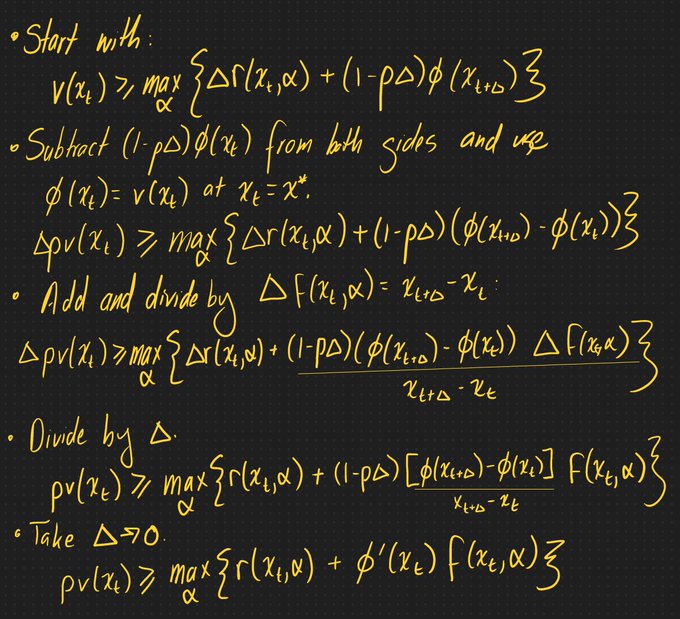 • Start with:
v(x_t) ⩾ max_α {Δr(x_t,α) + (1-ρΔ)ϕ(x_{t+Δ})}
• Subtract (1-ρΔ)ϕ(x_t) from both sides and use
ϕ(x_t) = v(x_t) at x_t = x*.
Δρv(x_t) ⩾ max_α {Δr(x_t,α) + (1-ρΔ)(ϕ(x_{t+Δ}) - ϕ(x_t))}
• Add and divide by Δf(x_t,α) = x_{t+Δ} - x_t:
Δρv(x_t) ⩾ max_α {Δr(x_t,α) + (1-ρΔ)(ϕ(x_{t+Δ}) - ϕ(x_t)) Δf(x_t,α)}
x_{t+Δ} - x_t
• Divide by Δ.
ρv(x_t) ⩾ max_α {r(x_t,α) + (1-ρΔ)[ϕ(x_{t+Δ}) - ϕ(x_t)] f(x_t,α)}
x_{t+Δ} - x_t
• Take Δ→0.
ρv(x_t) ⩾ max_α {r(x_t,α) + ϕ'(x_t) f(x_t,α)}